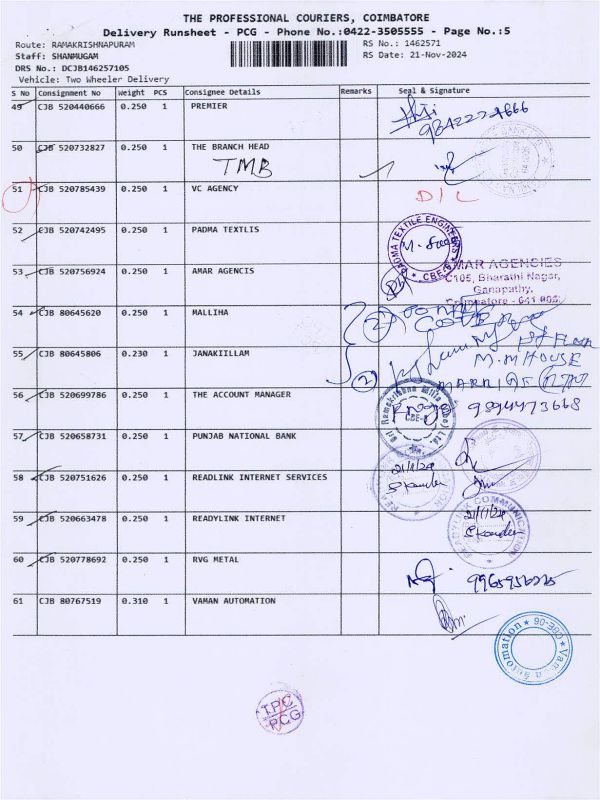 THE PROFESSIONAL COURIERS, COIMBATORE
Delivery Runsheet - PCG - Phone No.:0422-3505555 - Page No.:5
Route: RAMAKRISHNAPURAM RS No.: 1462571
Staff: SHANMUGAM RS Date: 21-Nov-2024
DRS No.: DCJB146257105
Vehicle: Two Wheeler Delivery
S No Consignment No Weight PCS Consignee Details Remarks Seal & Signature
49 CJB 520440666 0.250 1 PREMIER
50 CJB 520732827 0.250 1 THE BRANCH HEAD
TMB
51 CJB 520785439 0.250 1 VC AGENCY D/L
52 CJB 520742495 0.250 1 PADMA TEXTLIS
PADMA TEXTILE ENGINEERS
CBE-6
53 CJB 520756924 0.250 1 AMAR AGENCIS
MAR AGENCIES
C105, Bharathi Nagar,
Ganapathy,
Coimbatore - 641 006.
54 CJB 80645620 0.250 1 MALLIHA
55 CJB 80645806 0.230 1 JANAKIILLAM
M.M HOUSE
56 CJB 520699786 0.250 1 THE ACCOUNT MANAGER 9894473668
57 CJB 520658731 0.250 1 PUNJAB NATIONAL BANK
58 CJB 520751626 0.250 1 READLINK INTERNET SERVICES
21/11/24
59 CJB 520663478 0.250 1 READYLINK INTERNET
READYLINK COMMUNICATION
21/11/24
60 CJB 520778692 0.250 1 RVG METAL
61 CJB 80767519 0.310 1 VAMAN AUTOMATION
Vaman Automation
CBE-06
TPC
PCG